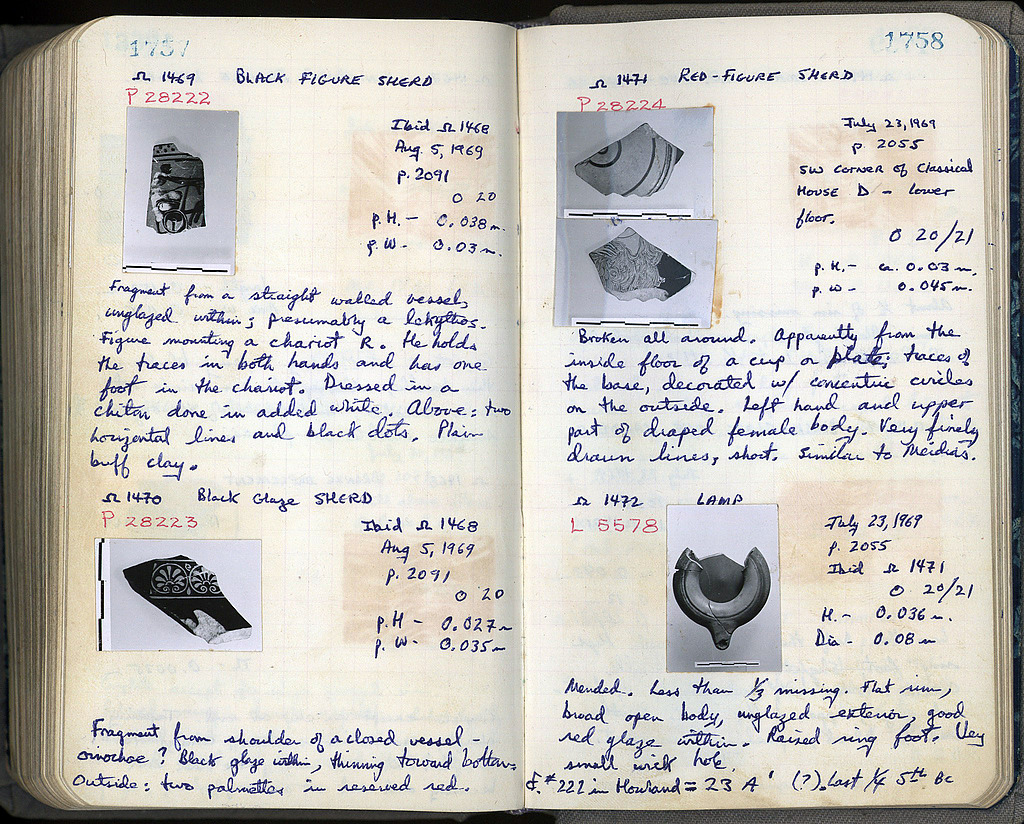 1757
Ω 1469 BLACK FIGURE SHERD
P 28222
Ibid Ω 1468
Aug. 5, 1969
p. 2091
O 20
p. H. - 0.038 m.
p. W - 0.03 m.
Fragment from a straight walled vessel,
unglazed within; presumably a lekythos.
Figure mounting a chariot R. He holds
the traces in both hands and has one
foot in the chariot. Dressed in a
chiton done in added white. Above: two
horizontal lines and black dots. Plain
buff clay.
Ω 1470 Black Glaze SHERD
P 28223
Ibid Ω 1468
Aug 5, 1969
p. 2091
O 20
p. H - 0.027 m
p. W - 0.035 m
Fragment from shoulder of a closed vessel -
oinochoe? Black glaze within, thinning toward bottom.
Outside: two palmettes in reserved red.
1758
Ω 1471 RED-FIGURE SHERD
P 28224
July 23, 1969
p. 2055
SW CORNER OF Classical
HOUSE D - lower
floor.
O 20/21
p. H. - ca. 0.03 m.
p. W - 0.045 m.
Broken all around. Apparently from the
inside floor of a cup or plate; traces of
the base, decorated w/ concentric circles
on the outside. Left hand and upper
part of draped female body. Very finely
drawn lines, short. Similar to Meidias.
Ω 1472 LAMP
L 5578
July 23, 1969
p. 2055
Ibid Ω 1471
O 20/21
H. - 0.036 m
Dia - 0.08 m
Mended. Less than 1/3 missing. Flat rim,
broad open body, unglazed exterior, good
red glaze within. Raised ring foot. Very
small wick hole.
cf. #222 in Howland = 23 A' (?). Last 1/4 5th BC